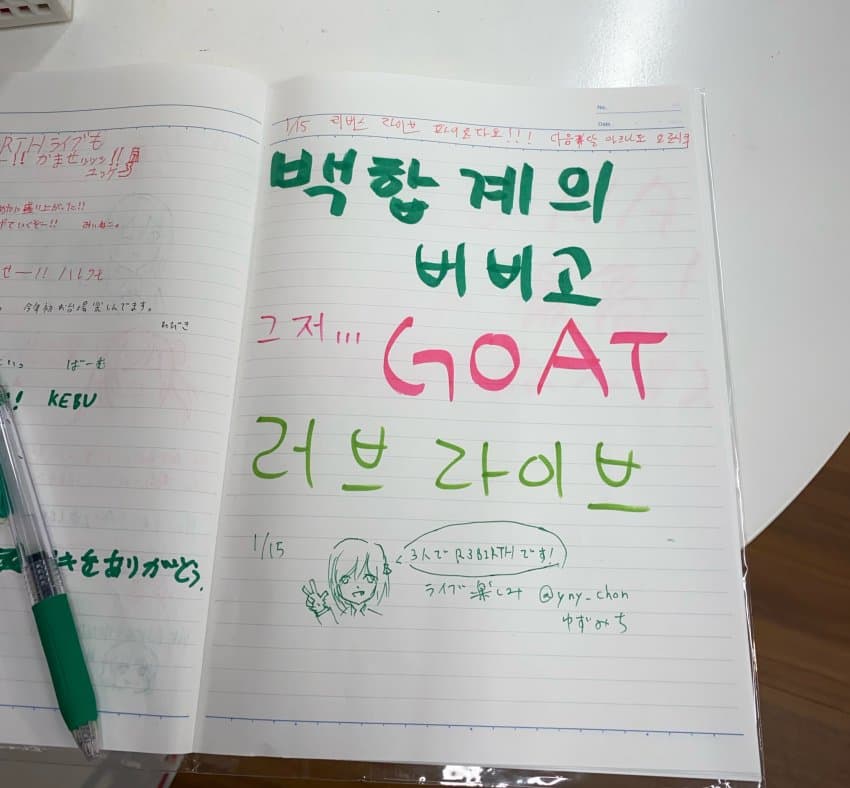 RTHライブも
かませリッツ!!
ユッケ
に盛り上がった!!
ていくぞー!! みいねこ。
せー!! ハレクモ
今年初お台場楽しんでます。
わびき
ばーむ
! KEBU
きをありがとう。
No.
Date
1/15 리버스 라이브 파이오다요!!! 다음 달 아레나도 요로시쿠
백합계의
버비고
그저... GOAT
러브 라이브
1/15
3人でR3BIRTHです!
ライブ楽しみ @yny_chon
ゆずみち